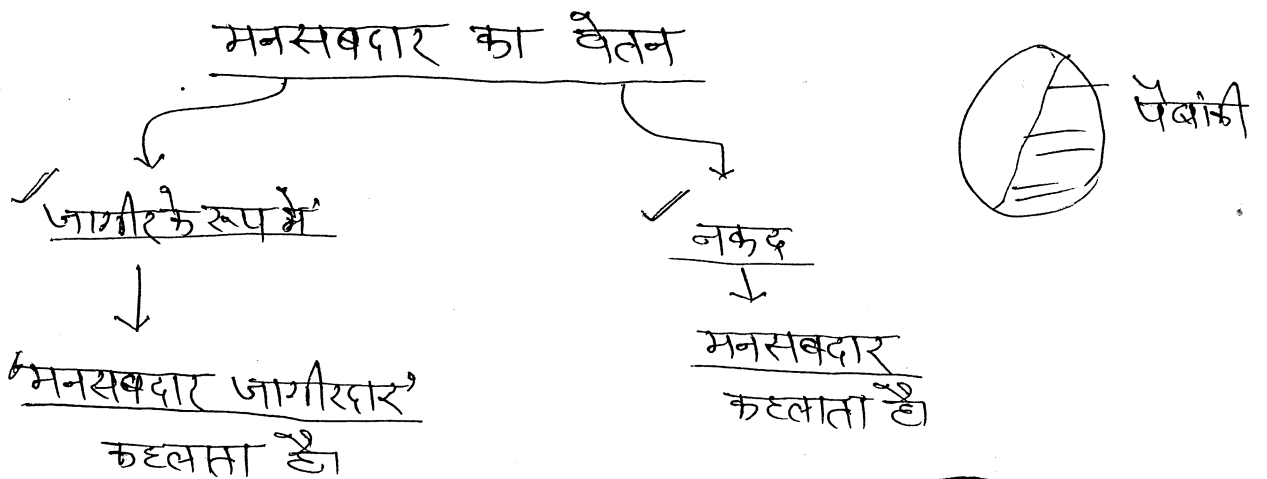 मनसबदार का वेतन
पैबांकी
जागीर के रूप में
नकद
मनसबदार
कहलाता है।
'मनसबदार जागीरदार'
कहलाता है।